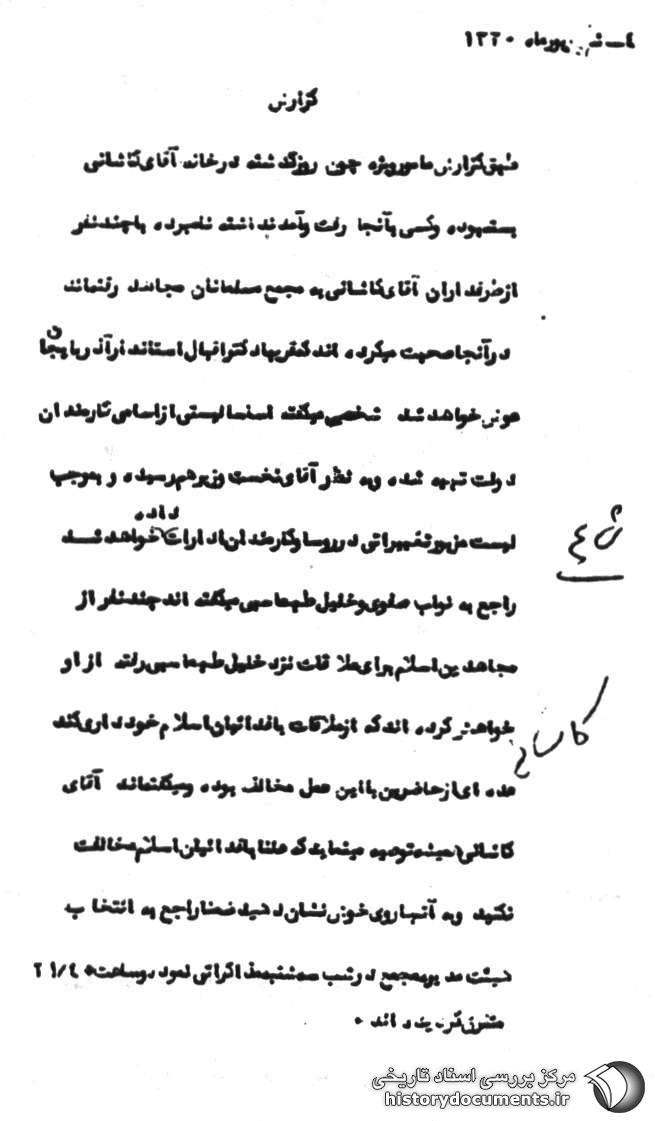 ٤ــ شهریورماه ۱۳۳۰
گزارش
طبق گزارش مامور ویژه چون روز گذشته درخانه آقای کاشانی
بسته بوده و کسی بآنجا رفت و آمد نداشته نامبرده باچند نفر
از طرفداران آقای کاشانی به مجمع مسلمانان مجاهد رفته اند
در آنجا صحبت میکرده اند که دکتر اقبال استاندار آذربایجان
عوض خواهد شد شخصی میگفته لیستی از اسامی کارمندان
دولت تهیه شده و به نظر آقای نخست وزیر هم رسیده و بموجب
لیست مزبور تغییراتی در روسا و کارمندان ادارات داده خواهد شد
راجع به نواب صفوی و خلیل طهماسبی میگفته اند چند نفر از
مجاهدین اسلام برای ملاقات نزد خلیل طهماسبی رفته از او
خواهش کرده اند که از ملاقات با فدائیان اسلام خودداری کند
عده ای از حاضرین با این عمل مخالف بوده و میگفته اند آقای
کاشانی همیشه توصیه مینماید که علنا با فدائیان اسلام مخالفت
نکنید و به آنها روی خوش نشان دهید ضمنا راجع به انتخاب
هیئت مدیره مجمع در شب سه شنبه مذاکراتی نموده و ساعت ۲۱/٤
متفرق گردیده اند ٠
کاشانی
مرکز بررسی اسناد تاریخی
historydocuments.ir